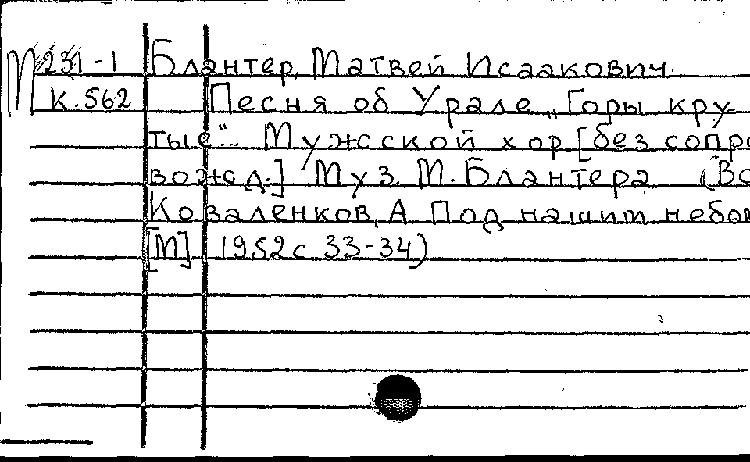 М 231-1 Блантер, Матвей Исаакович.
К.562 Песня об Урале „Горы кру-
тые“. Мужской хор [без сопро
вожд.] Муз. М. Блантера (В
Коваленков, А. Под нашим небо
[М] 1952 с 33-34)